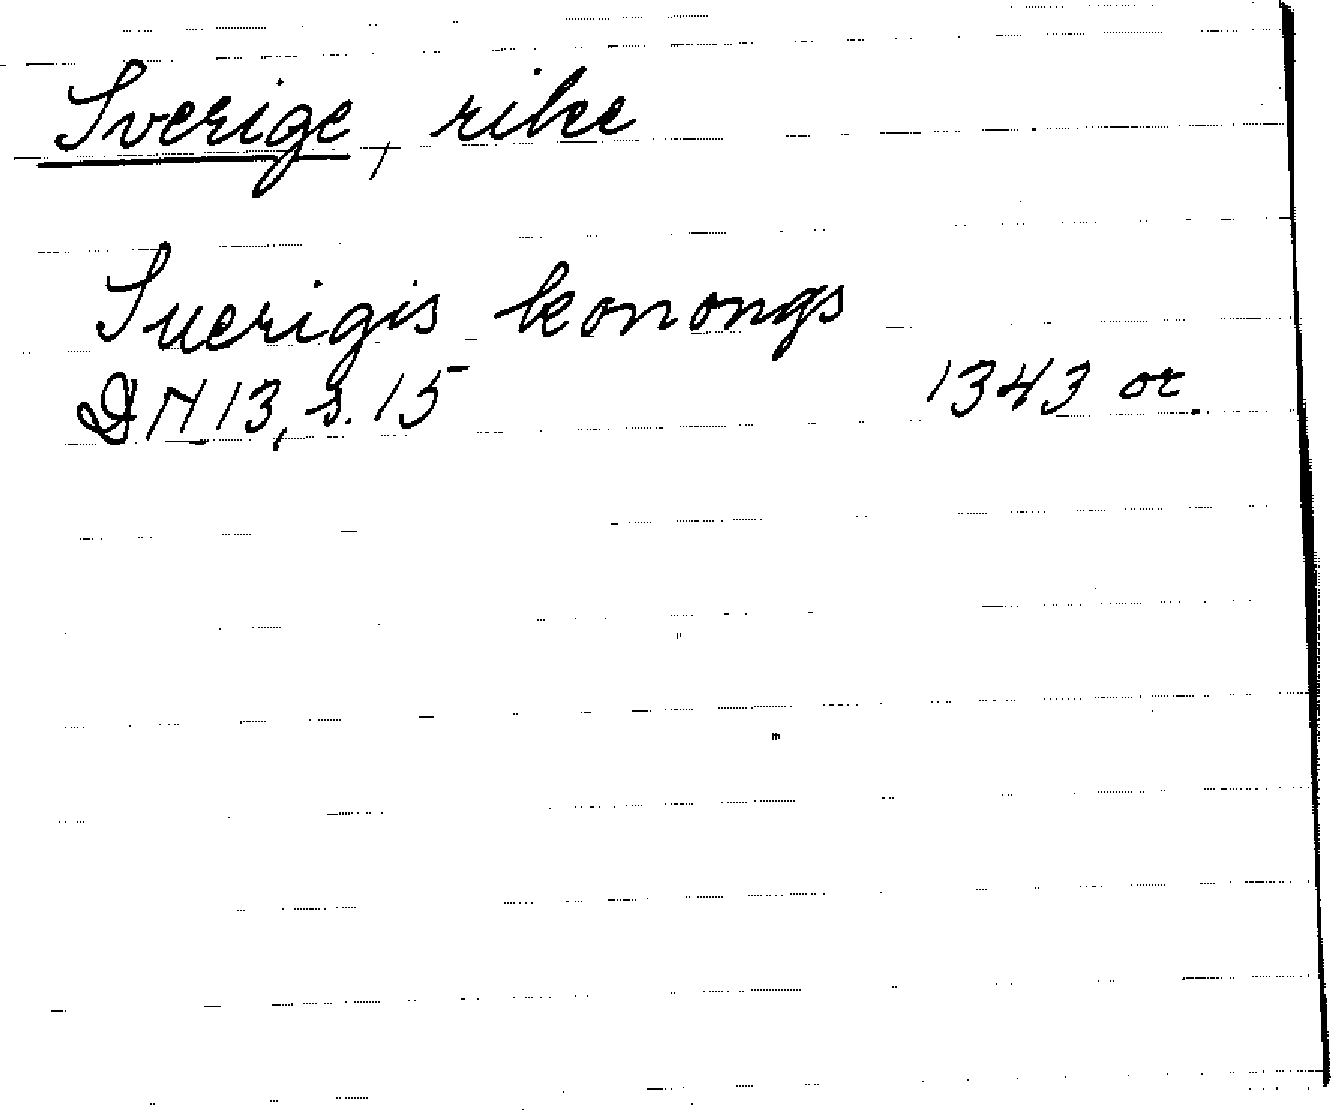 Sverige, rike
Suerigis konongs
DN 13, s. 15 1343 or.